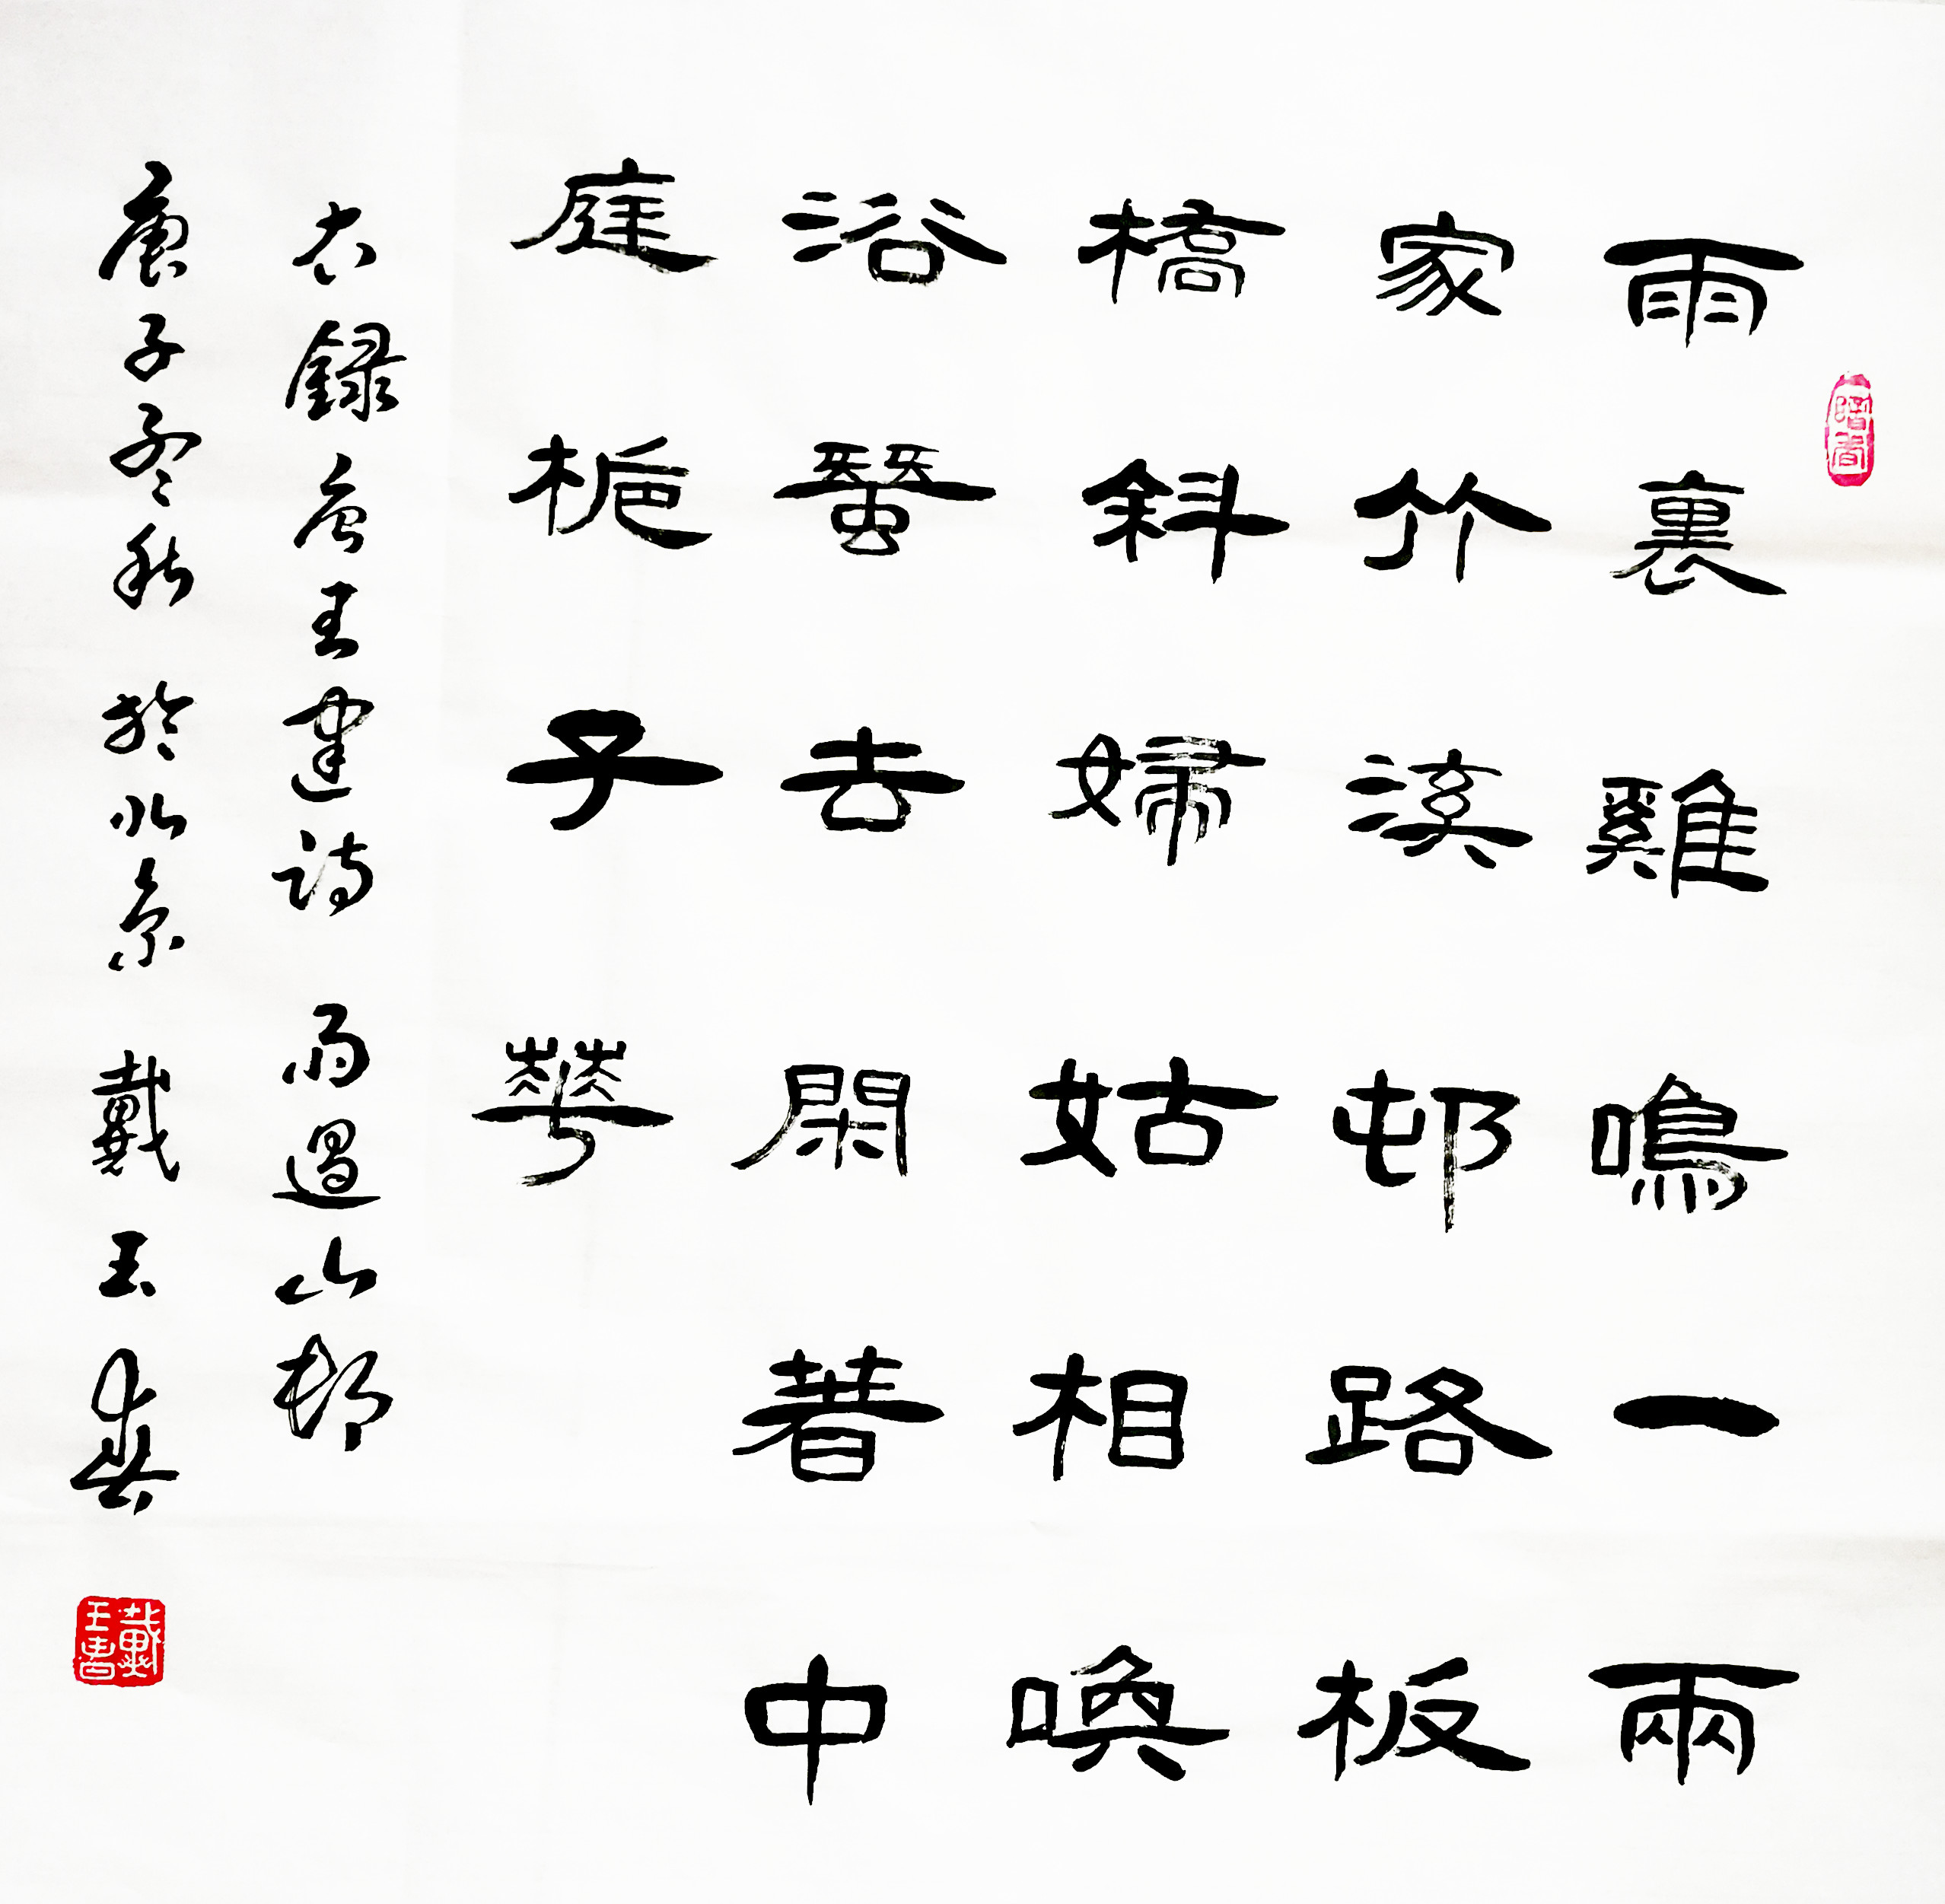 雨裏雞鳴一兩
家竹溪邨路板
橋斜婦姑相喚
浴蠶去閑著中
庭梔子華
右録唐王建詩雨過山邨
庚子冬秋於北京戴玉
戴玉書